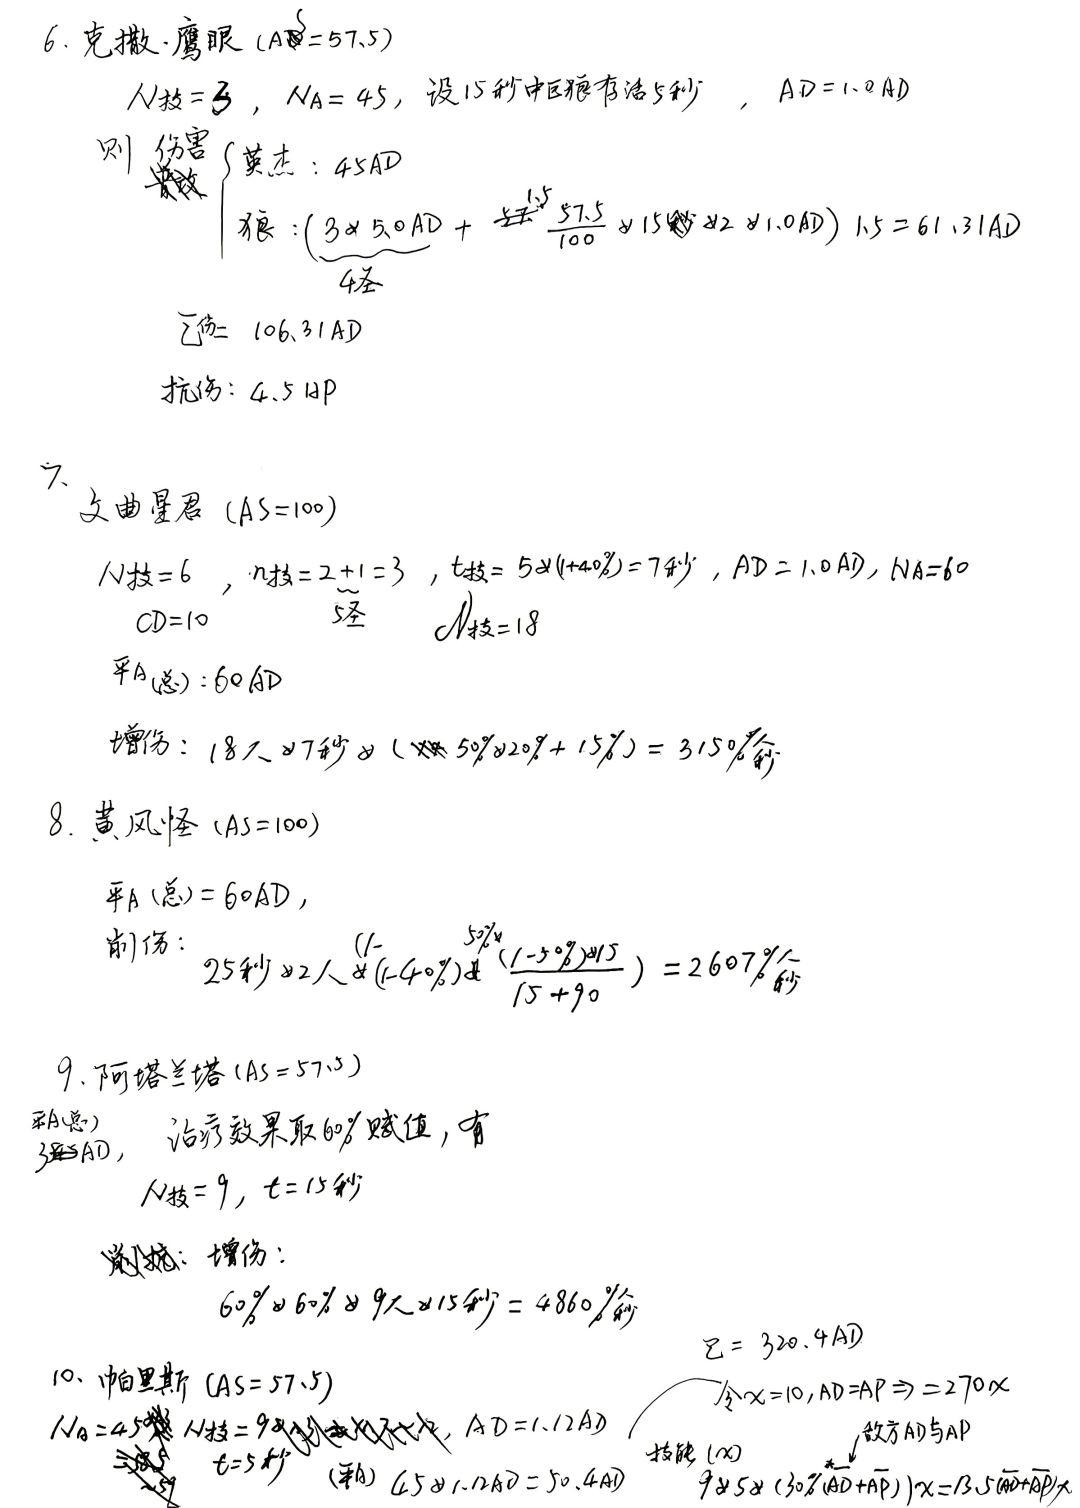 6. 克撒·鹰眼 (AS=57.5)
N技=3, NA=45, 设15秒中巨狼存活5秒, AD=1.0AD
则 伤害 { 英杰: 45AD
狼: (3×5.0AD + 57.5/100 ×15×2×1.0AD) 1.5=61.31AD
4圣
总伤= 106.31AD
抗伤: 4.5HP
7.
文曲星君 (AS=100)
N技=6, n技=2+1=3, t技=5×(1+40%)=7秒, AD=1.0AD, NA=60
CD=10 5圣 N技=18
平A(总):60AD
增伤: 18人×7秒×(50%×20%+15%)=3150%人秒
8. 黄风怪 (AS=100)
平A(总)=60AD,
削伤:
25秒×2人×(1-(1-40%)× 50%×(1-50%)×15/15+90)=2607%人秒
9. 阿塔兰塔 (AS=57.5)
平A(总)
AD, 治疗效果取60%赋值, 有
N技=9, t=15秒
增伤:
60%×60%×9人×15秒=4860%人秒
10. 帕里斯 (AS=57.5)
NA=45 N技=9, AD=1.12AD
t=5秒 (平A) 45×1.12AD=50.4AD
总=320.4AD
令x=10, AD=AP⇒=270x
敌方AD与AP
技能(x)
9×5×(30%(AD+AP))x=13.5(AD+AP)x